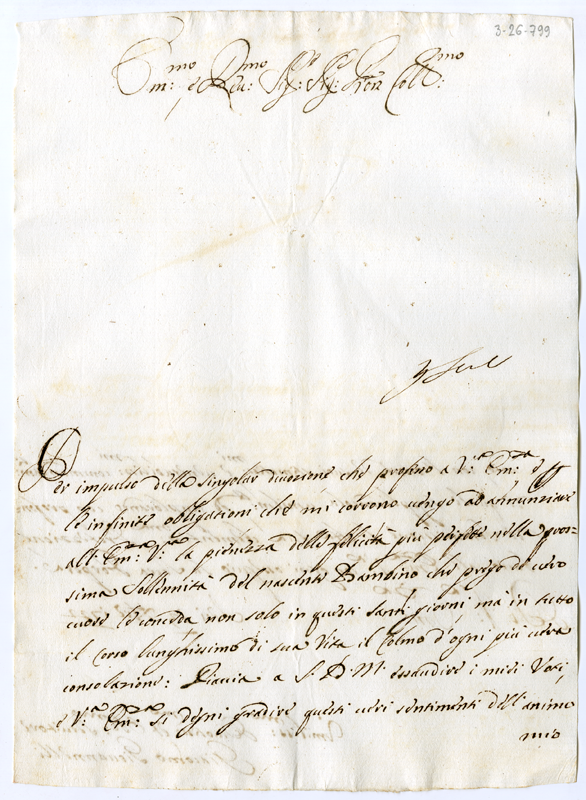 3-26-799
Em:mo e Rev:mo Sig: Sig: Pron Coll:mo
Per impulso della singolar divozione che professo a V:a Em:za e p
le infinite obligazioni che mi corrono vengo ad annunziare
all' Em:a V:ra la pienezza delle felicità più perfette nella pros=
sima Sollennità del nascente Bambino che prego di vero
cuore le conceda non solo in questi santi giorni mà in tutto
il corso lunghissimo di sua Vita il Colmo d'ogni più vera
consolazione: Piaccia a S. D. M. essaudire i miei Voti,
e V:a Em:za si degni gradire questi veri sentimenti dell'animo
mio